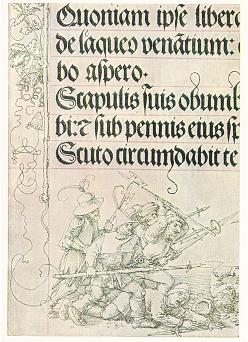 Quoniam ipse libera
de laqueo venãtium:
bo aspero.
Scapulis suis obumb
bi: ⁊ sub pennis eius sp
Scuto circumdabit te